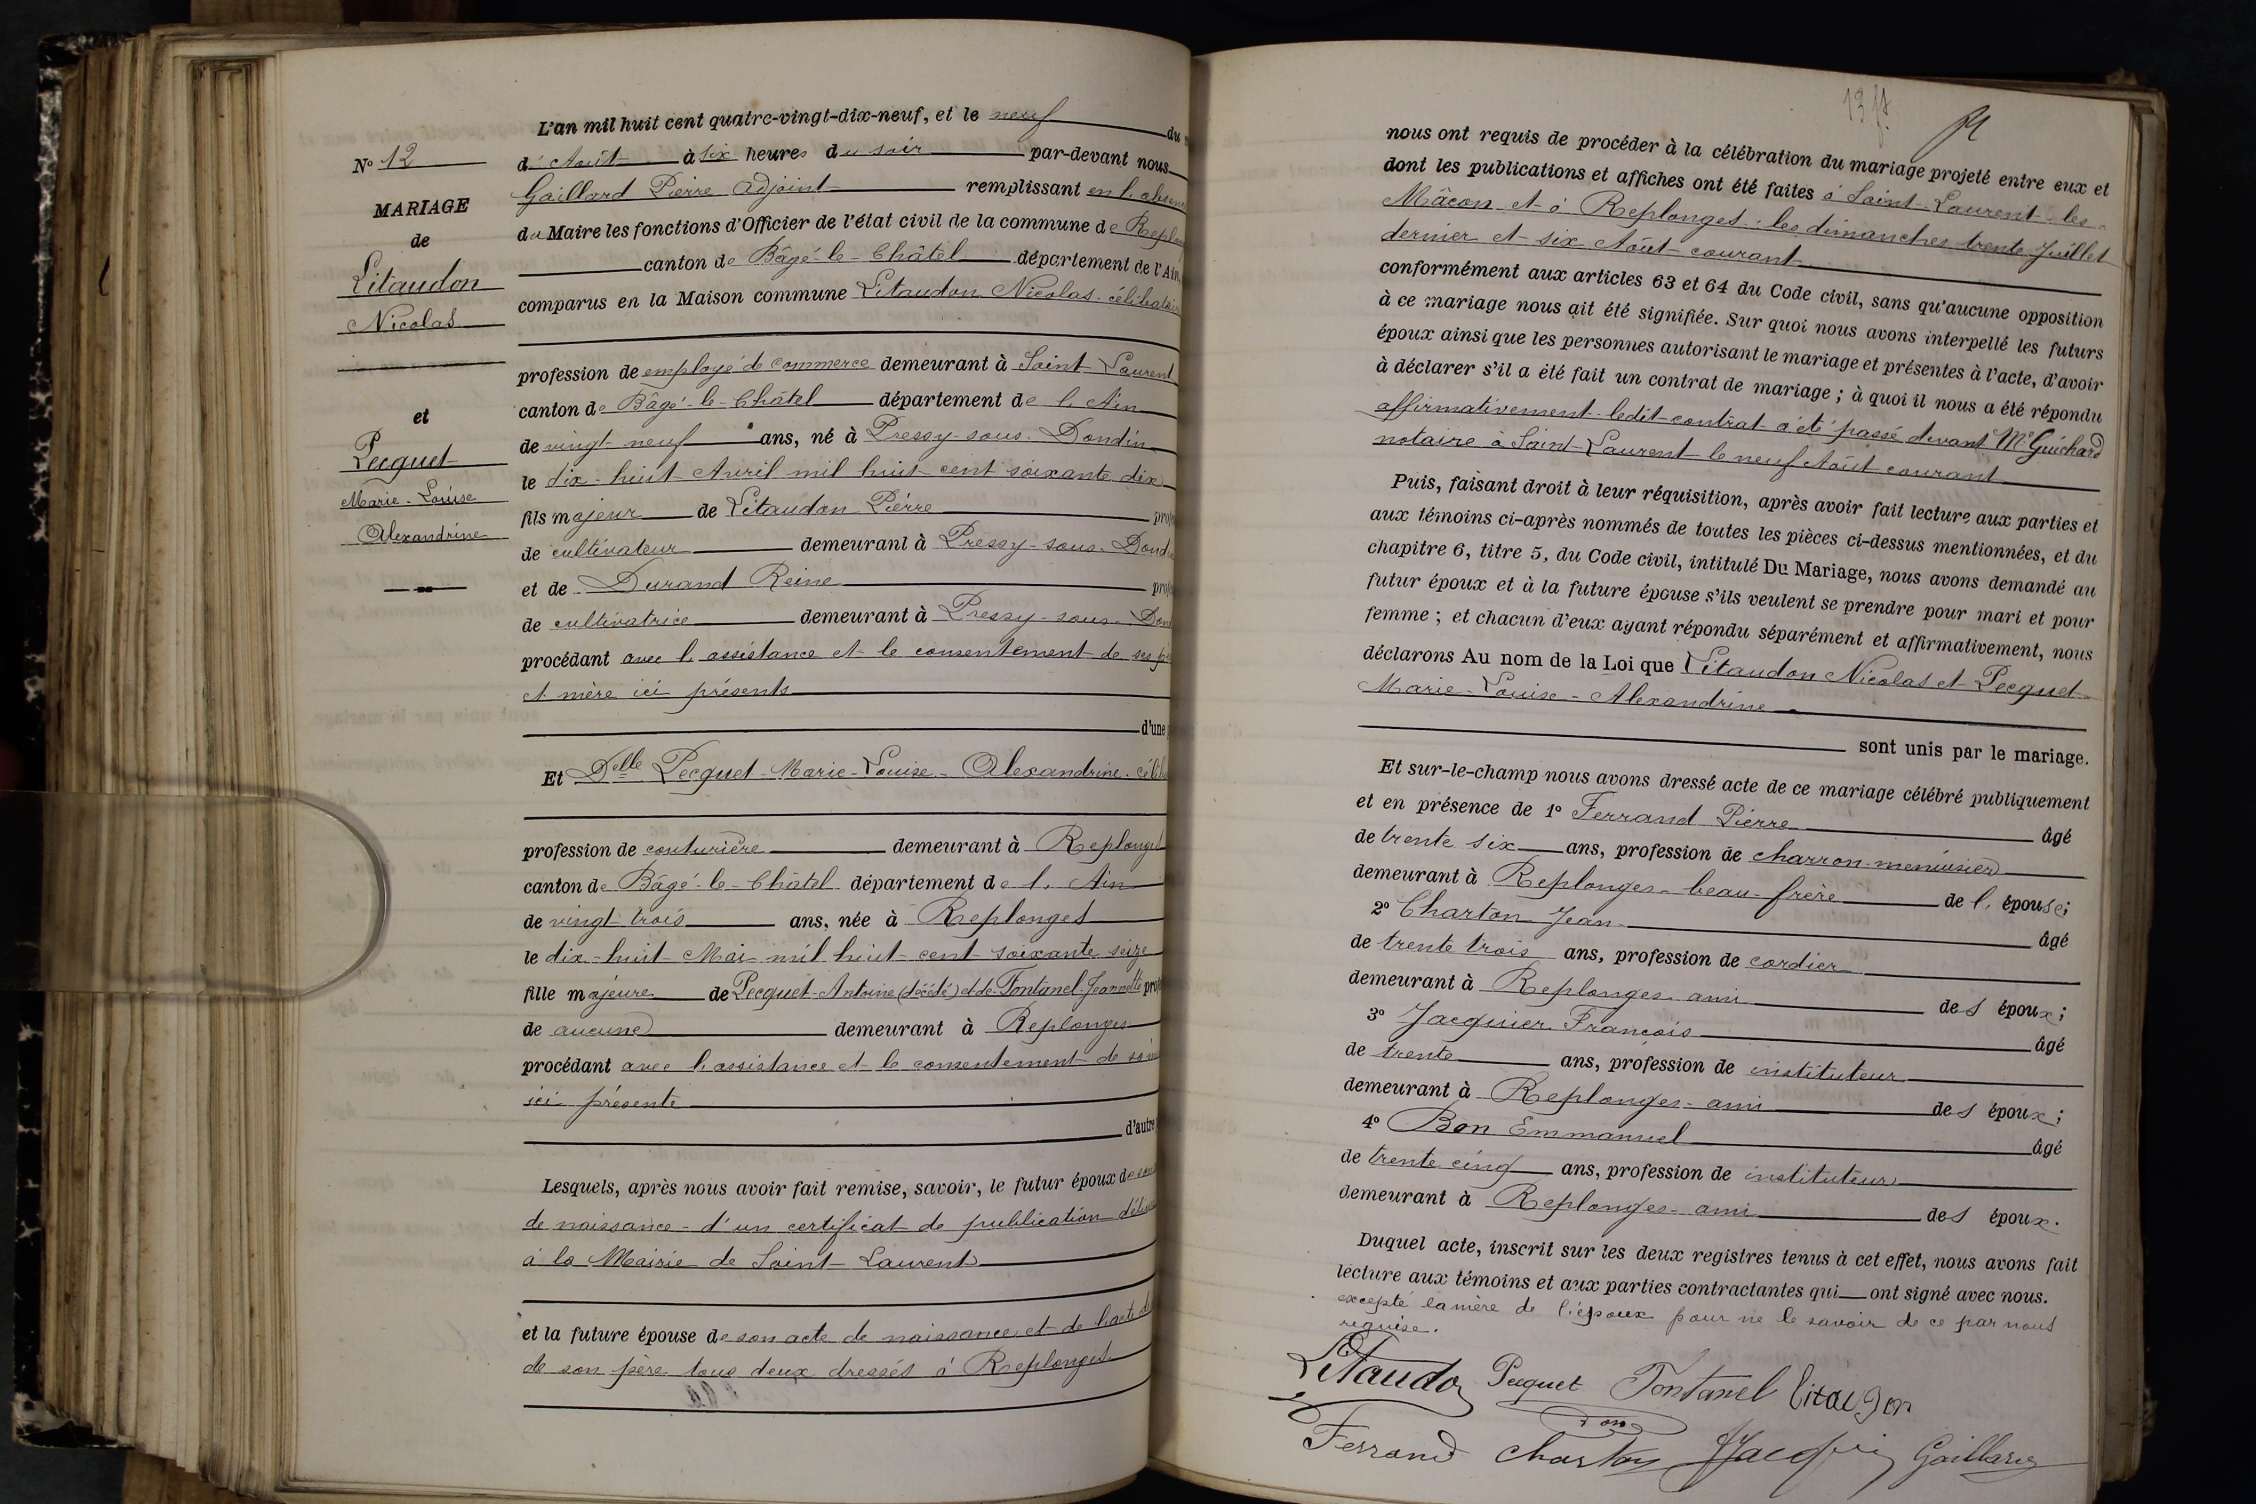 N° 12
MARIAGE
de
Litaudon
Nicolas
et
Pecquet
Marie-Louise
Alexandrine
L'an mil huit cent quatre-vingt-dix-neuf, et le neuf du
d'Août à six heures du soir par-devant nous
Gaillard Pierre Adjoint remplissant en l'absen
du Maire les fonctions d'Officier de l'état civil de la commune de Replon
canton de Bâgé-le-Châtel département de l'Ain,
comparus en la Maison commune Litaudon Nicolas célibatair
profession de employé de commerce demeurant à Saint Laurent
canton de Bâgé-le-Châtel département de l'Ain
de vingt neuf ans, né à Pressy-sous-Dondin
le dix-huit Avril mil huit cent soixante dix
fils majeur de Litaudon Pierre prof
de cultivateur demeurant à Pressy-sous-Dond
et de Durand Reine prof
de cultivatrice demeurant à Pressy-sous-Don
procédant avec l'assistance et le consentement de ses p
et mère ici présents
d'une
Et Delle Pecquet-Marie-Louise-Alexandrine célib
profession de couturière demeurant à Replonges
canton de Bâgé-le-Châtel département de l'Ain
de vingt trois ans, née à Replonges
le dix-huit Mai mil huit cent soixante seize
fille majeure de Pecquet-Antoine (décédé) et de Fontanel Jeannette prof
de aucune demeurant à Replonges
procédant avec l'assistance et le consentement de sa
ici présente
d'autre
Lesquels, après nous avoir fait remise, savoir, le futur époux de son
de naissance - d'un certificat de publication délivré
à la Mairie de Saint-Laurent
et la future épouse de son acte de naissance et de l'acte de
de son père tous deux dressés à Replonges
nous ont requis de procéder à la célébration du mariage projeté entre eux et
dont les publications et affiches ont été faites à Saint-Laurent-les-
Mâcon et à Replonges les dimanches trente Juillet
dernier et six Août courant
conformément aux articles 63 et 64 du Code civil, sans qu'aucune opposition
à ce mariage nous ait été signifiée. Sur quoi nous avons interpellé les futurs
époux ainsi que les personnes autorisant le mariage et présentes à l'acte, d'avoir
à déclarer s'il a été fait un contrat de mariage ; à quoi il nous a été répondu
affirmativement ledit contrat a été passé devant Me Guichard
notaire à Saint-Laurent le neuf Août courant
Puis, faisant droit à leur réquisition, après avoir fait lecture aux parties et
aux témoins ci-après nommés de toutes les pièces ci-dessus mentionnées, et du
chapitre 6, titre 5, du Code civil, intitulé Du Mariage, nous avons demandé au
futur époux et à la future épouse s'ils veulent se prendre pour mari et pour
femme ; et chacun d'eux ayant répondu séparément et affirmativement, nous
déclarons Au nom de la Loi que Litaudon Nicolas et Pecquet
Marie-Louise-Alexandrine
sont unis par le mariage.
Et sur-le-champ nous avons dressé acte de ce mariage célébré publiquement
et en présence de 1° Ferrand Pierre âgé
de trente six ans, profession de charron-menuisier
demeurant à Replonges - beau-frère de l'épouse;
2° Charton Jean âgé
de trente trois ans, profession de cordier
demeurant à Replonges ami des époux;
3° Jacquier François âgé
de trente ans, profession de instituteur
demeurant à Replonges - ami des époux;
4° Bon Emmanuel âgé
de trente cinq ans, profession de instituteur
demeurant à Replonges - ami des époux.
Duquel acte, inscrit sur les deux registres tenus à cet effet, nous avons fait
lecture aux témoins et aux parties contractantes qui ont signé avec nous.
excepté la mère de l'époux pour ne le savoir de ce par nous
requise.
Litaudon Pecquet Fontanel Litaudon
Bon
Ferrand Charton Jacquier Gaillard